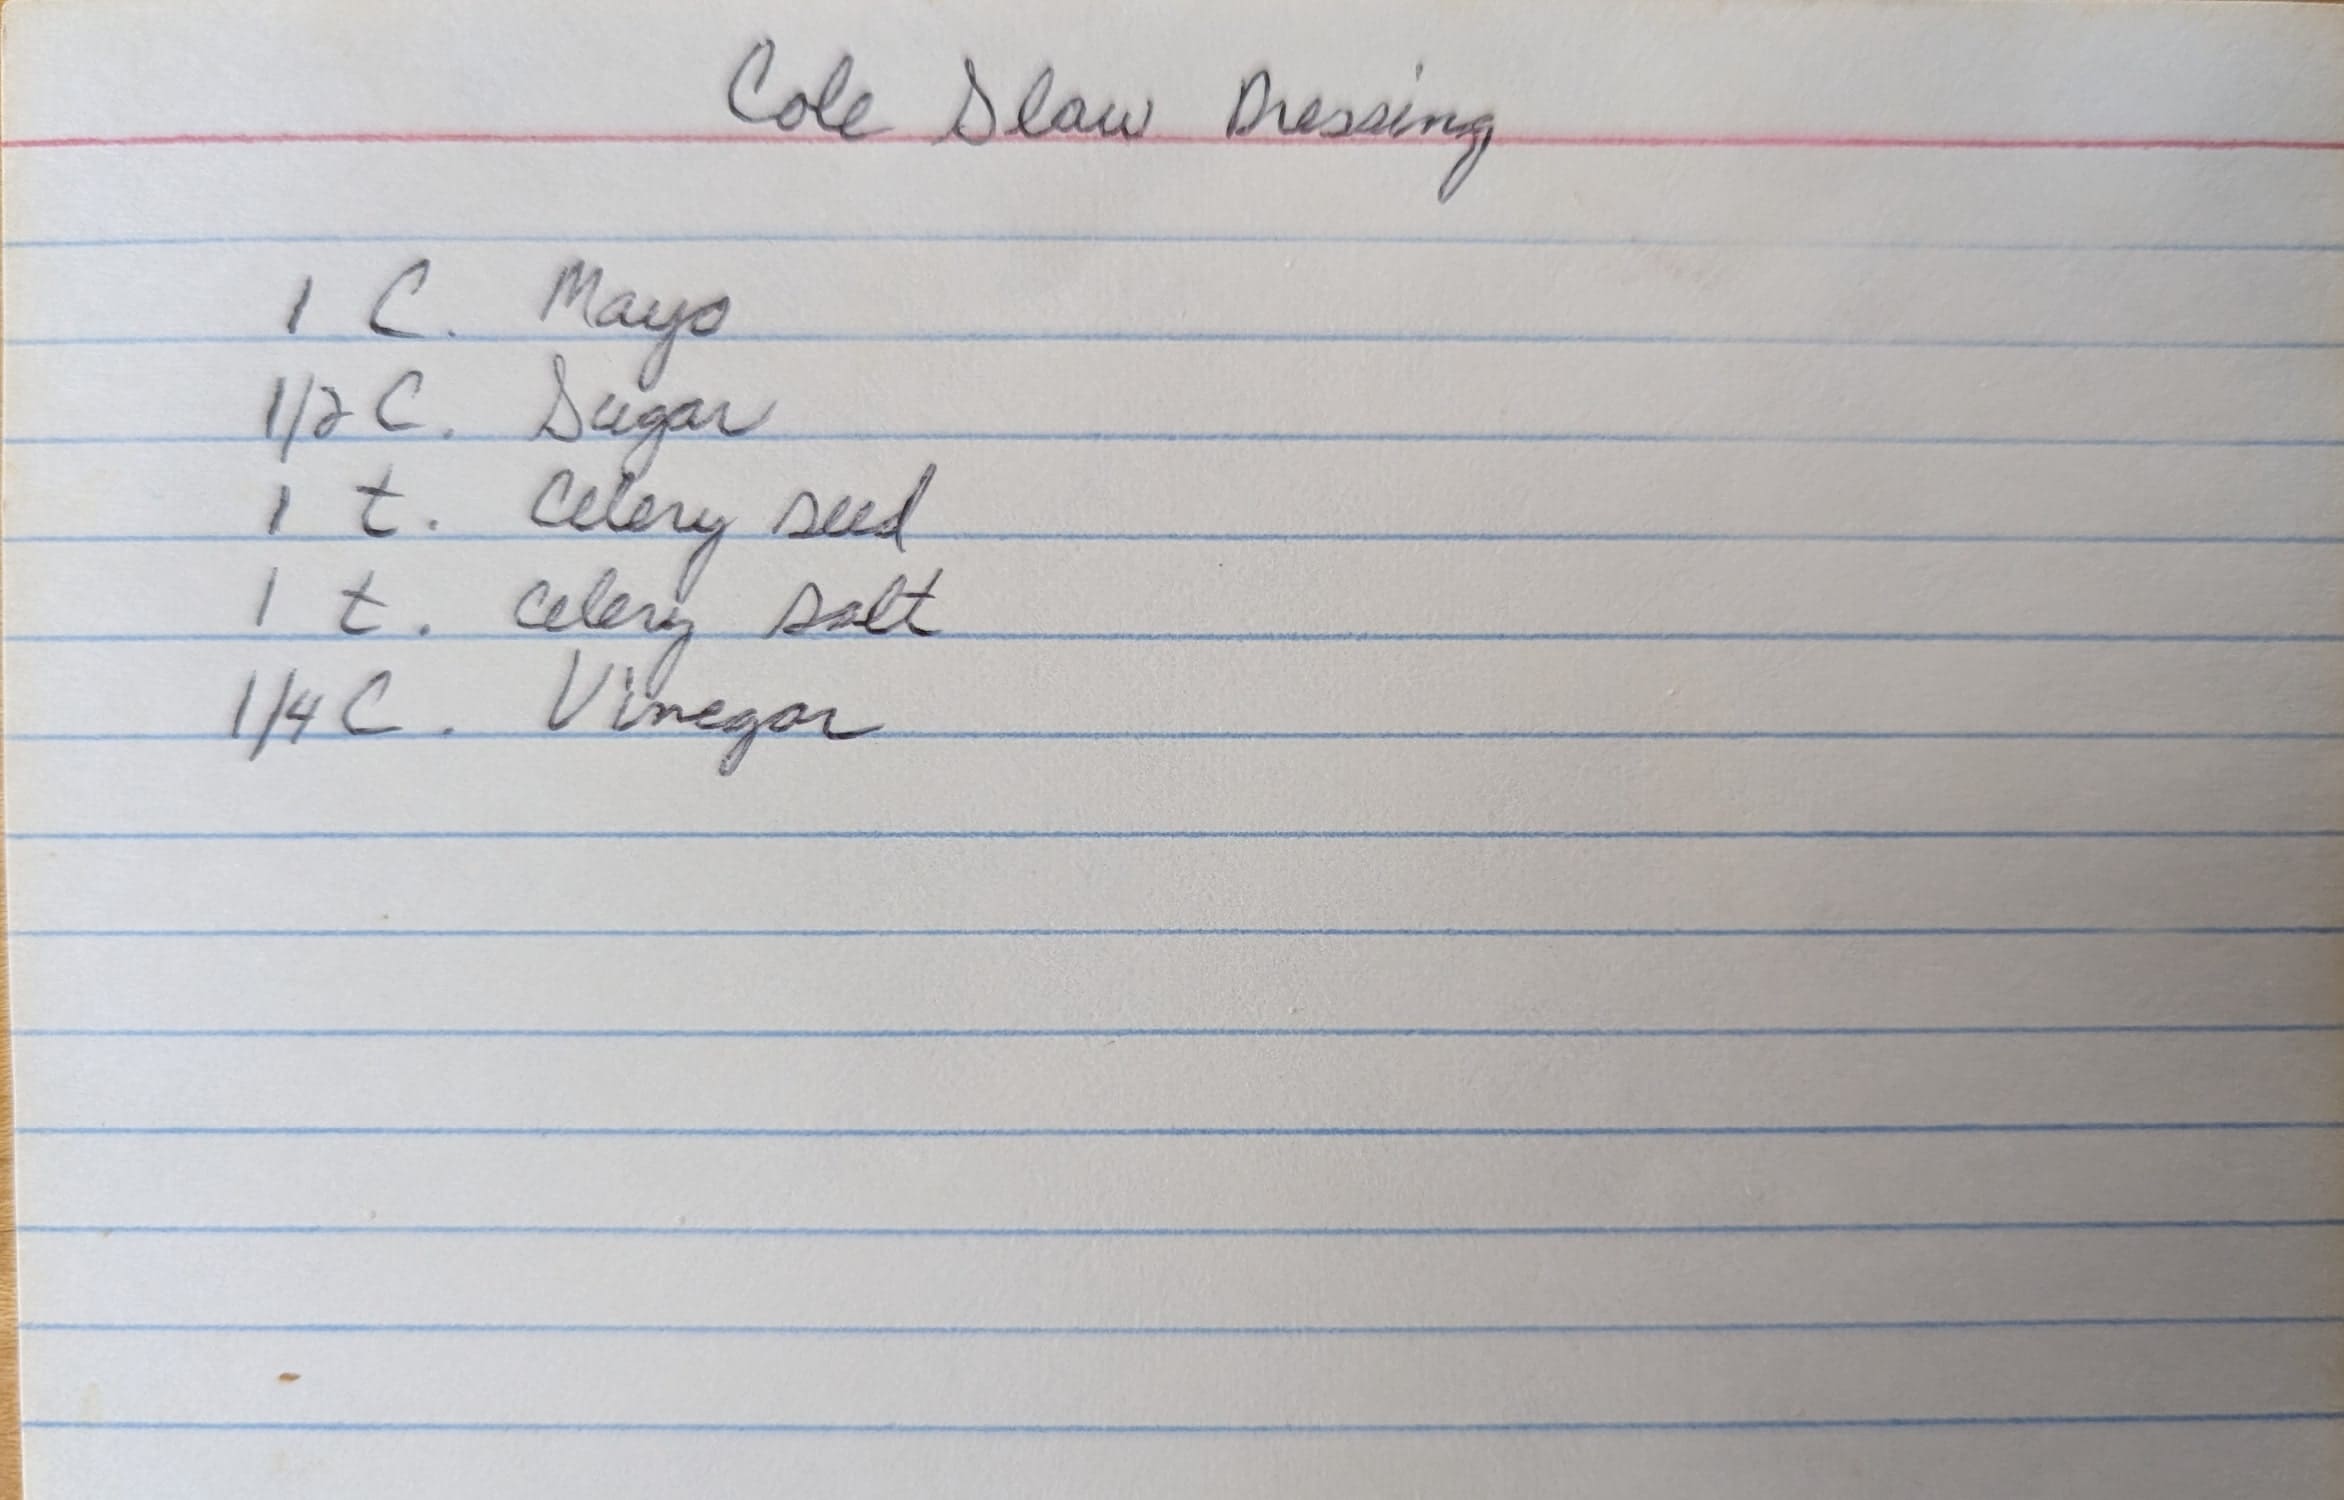 Cole Slaw Dressing
1 C. Mayo
1/2 C. Sugar
1 t. Celery seed
1 t. celery salt
1/4 C. Vinegar